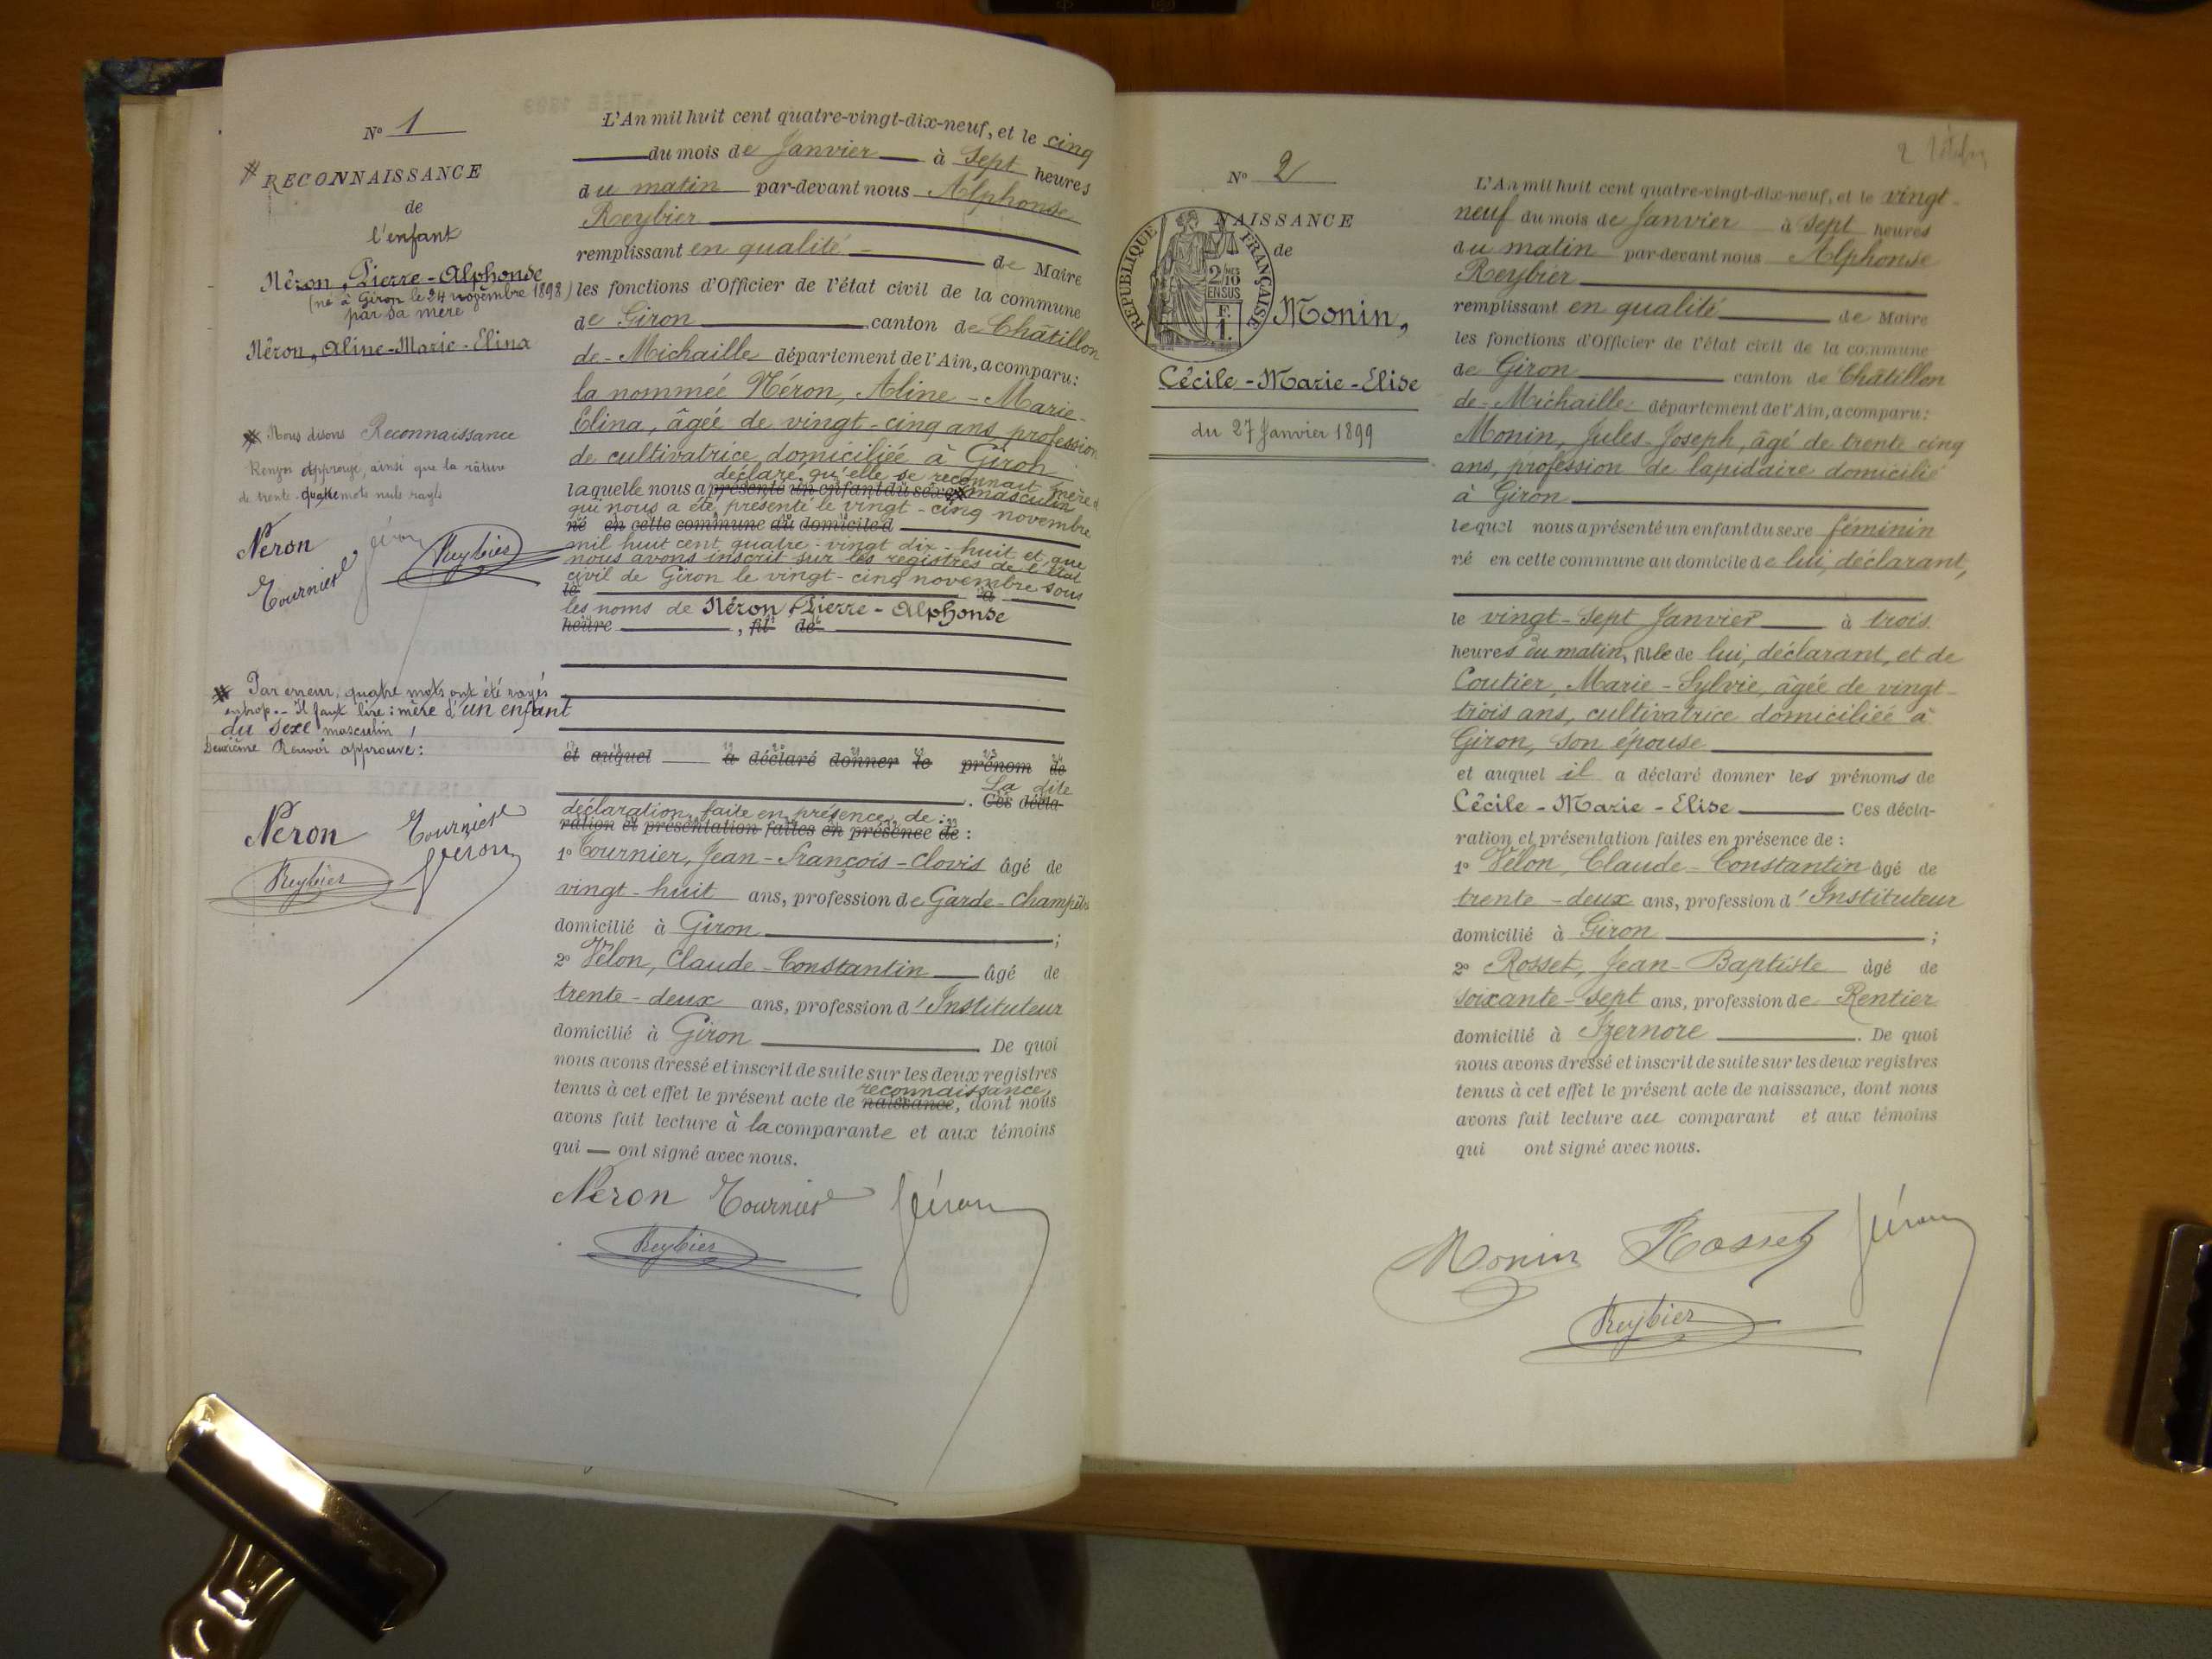 N° 1
# RECONNAISSANCE
de
l'enfant
Néron, Pierre-Alphonse
(né à Giron le 24 novembre 1898)
par sa mère
Néron, Aline-Marie-Elina
# Nous disons Reconnaissance
Renvoi approuvé, ainsi que la râture
de trente-quatre mots nuls rayés
Neron Reybier
Tournier
# Par erreur, quatre mots ont été rayés
en trop.- Il faut lire : mère d'un enfant
du sexe masculin
Deuxième Renvoi approuvé :
Neron Tournier
Reybier
L'An mil huit cent quatre-vingt-dix-neuf, et le cinq
du mois de Janvier à Sept heures
du matin par-devant nous Alphonse
Reybier
remplissant en qualité de Maire
les fonctions d'Officier de l'état civil de la commune
de Giron canton de Châtillon
de-Michaille département de l'Ain, a comparu :
la nommée Néron, Aline-Marie-
Elina, âgée de vingt-cinq ans, profession
de cultivatrice domiciliée à Giron
déclaré qu'elle se reconnait mère
laquelle nous a présenté un enfant du sexe masculin
qui nous a été présenté le vingt-cinq novembre
né en cette commune au domicile d
mil huit cent quatre-vingt dix-huit et que
nous avons inscrit sur les registres de l'Etat
civil de Giron le vingt-cinq novembre sous
le à
les noms de Néron Pierre-Alphonse
heure , fil de
et auquel a déclaré donner le prénom de
La dite
. Ces décla-
déclaration faite en présence de :
ration et présentation faites en présence de :
1° Tournier, Jean-François-Clovis âgé de
vingt-huit ans, profession de Garde-Champêtre
domicilié à Giron ;
2° Vélon, Claude-Constantin âgé de
trente-deux ans, profession d'Instituteur
domicilié à Giron De quoi
nous avons dressé et inscrit de suite sur les deux registres
reconnaissance,
tenus à cet effet le présent acte de naissance, dont nous
avons fait lecture à la comparante et aux témoins
qui — ont signé avec nous.
Neron Tournier
Reybier
N° 2
NAISSANCE
de
RÉPUBLIQUE FRANÇAISE
2/10
EN SUS
F.
1.
Monin,
Cécile-Marie-Elise
du 27 Janvier 1899
2
L'An mil huit cent quatre-vingt-dix-neuf, et le vingt-
neuf du mois de Janvier à Sept heures
du matin par-devant nous Alphonse
Reybier
remplissant en qualité de Maire
les fonctions d'Officier de l'état civil de la commune
de Giron canton de Châtillon
de-Michaille département de l'Ain, a comparu :
Monin, Jules-Joseph, âgé de trente cinq
ans, profession de lapidaire domicilié
à Giron
lequel nous a présenté un enfant du sexe féminin
né en cette commune au domicile de lui, déclarant,
le vingt-sept Janvier à trois
heures du matin, fille de lui, déclarant, et de
Coutier, Marie-Sylvie, âgée de vingt-
trois ans, cultivatrice domiciliée à
Giron, son épouse
et auquel il a déclaré donner les prénoms de
Cécile-Marie-Elise Ces décla-
ration et présentation faites en présence de :
1° Vélon, Claude-Constantin âgé de
trente-deux ans, profession d'Instituteur
domicilié à Giron ;
2° Rosset, Jean-Baptiste âgé de
soixante-sept ans, profession de Rentier
domicilié à Izernore . De quoi
nous avons dressé et inscrit de suite sur les deux registres
tenus à cet effet le présent acte de naissance, dont nous
avons fait lecture au comparant et aux témoins
qui ont signé avec nous.
Monin Rosset
Reybier